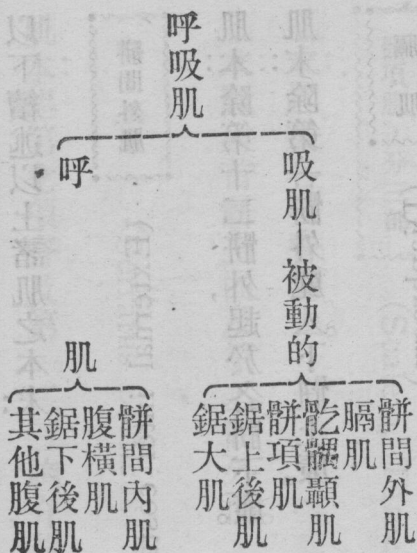 呼吸肌
吸肌—被動的
骿間外肌
膈肌
骿項肌
鋸上後肌
鋸大肌
呼
肌
骿間內肌
腹橫肌
鋸下後肌
其他腹肌